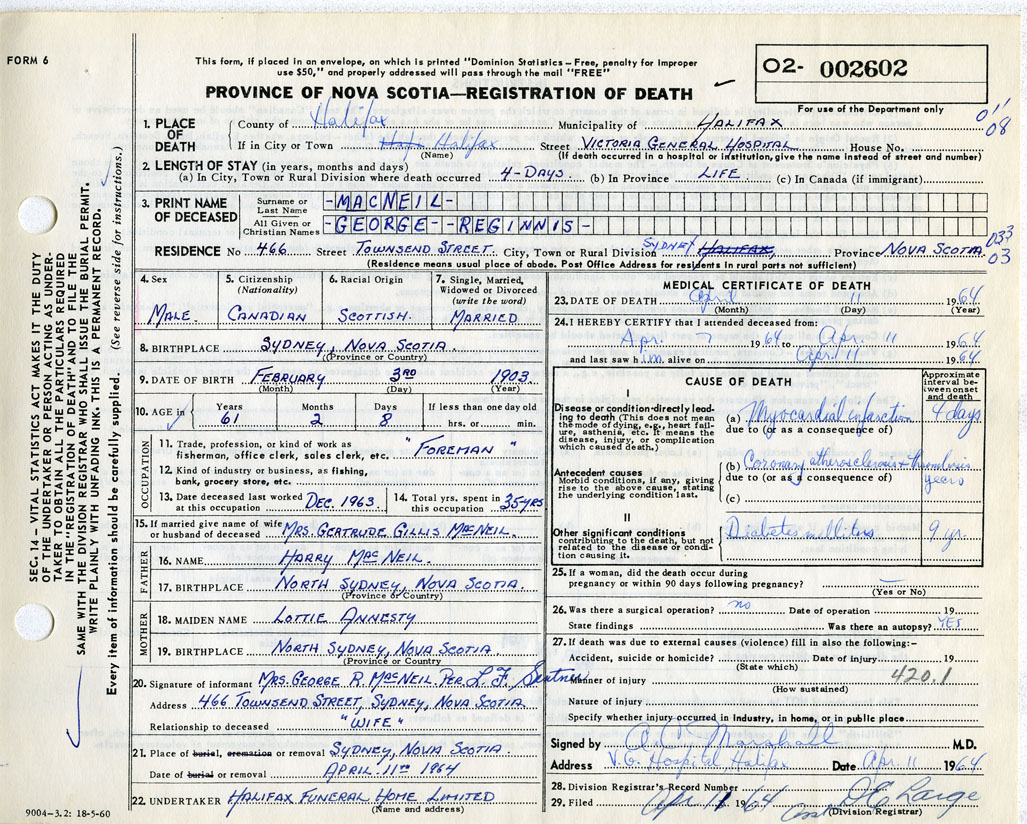 FORM 6
This form, if placed in an envelope, on which is printed "Dominion Statistics—Free, penalty for improper
use $50," and properly addressed will pass through the mail "FREE"
O2- 002602
PROVINCE OF NOVA SCOTIA—REGISTRATION OF DEATH
For use of the Department only
08
1. PLACE OF DEATH
County of Halifax Municipality of HALIFAX
If in City or Town Halifax Street VICTORIA GENERAL HOSPITAL House No.
(Name) (If death occurred in a hospital or institution, give the name instead of street and number)
2. LENGTH OF STAY (in years, months and days)
(a) In City, Town or Rural Division where death occurred 4-DAYS. (b) In Province LIFE. (c) In Canada (if immigrant)
3. PRINT NAME OF DECEASED
Surname or Last Name -MACNEIL-
All Given or Christian Names -GEORGE--REGINNIS-
033
03
RESIDENCE No 466 Street TOWNSEND STREET. City, Town or Rural Division SYDNEY HALIFAX, Province NOVA SCOTIA
(Residence means usual place of abode. Post Office Address for residents in rural parts not sufficient)
4. Sex
MALE.
5. Citizenship
(Nationality)
CANADIAN
6. Racial Origin
SCOTTISH.
7. Single, Married,
Widowed or Divorced
(write the word)
MARRIED
8. BIRTHPLACE SYDNEY, NOVA SCOTIA.
(Province or Country)
9. DATE OF BIRTH FEBRUARY 3RD 1903.
(Month) (Day) (Year)
10. AGE in
Years Months Days If less than one day old
61 2 8 hrs. or min.
OCCUPATION
11. Trade, profession, or kind of work as
fisherman, office clerk, sales clerk, etc. "FOREMAN"
12. Kind of industry or business, as fishing,
bank, grocery store, etc.
13. Date deceased last worked
at this occupation DEC. 1963.
14. Total yrs. spent in
this occupation 35 YRS
15. If married give name of wife
or husband of deceased MRS. GERTRUDE GILLIS MACNEIL.
FATHER
16. NAME HARRY MACNEIL.
17. BIRTHPLACE NORTH SYDNEY, NOVA SCOTIA.
(Province or Country)
MOTHER
18. MAIDEN NAME LOTTIE ANNESTY
19. BIRTHPLACE NORTH SYDNEY, NOVA SCOTIA.
(Province or Country)
20. Signature of informant MRS. GEORGE R. MACNEIL PER L. F.
Address 466 TOWNSEND STREET, SYDNEY, NOVA SCOTIA.
Relationship to deceased "WIFE"
21. Place of burial, cremation or removal SYDNEY, NOVA SCOTIA.
Date of burial or removal APRIL 11TH 1964
22. UNDERTAKER HALIFAX FUNERAL HOME LIMITED
(Name and address)
9004-3.2: 18-5-60
MEDICAL CERTIFICATE OF DEATH
23. DATE OF DEATH April 11 1964
(Month) (Day) (Year)
24. I HEREBY CERTIFY that I attended deceased from:
Apr. 7 1964 to Apr. 11 1964
and last saw him alive on Apr. 11 1964
CAUSE OF DEATH
Approximate
interval be-
tween onset
and death
I
Disease or condition directly lead-
ing to death (This does not mean
the mode of dying, e.g., heart fail-
ure, asthenia, etc. It means the
disease, injury, or complication
which caused death.)
(a) Myocardial infarction 4 days
due to (or as a consequence of)
Antecedent causes
Morbid conditions, if any, giving
rise to the above cause, stating
the underlying condition last.
(b) Coronary atherosclerosis + thrombosis years
due to (or as a consequence of)
(c)
II
Other significant conditions
contributing to the death, but not
related to the disease or condi-
tion causing it.
Diabetes mellitus 9 yr.
25. If a woman, did the death occur during
pregnancy or within 90 days following pregnancy? —
(Yes or No)
26. Was there a surgical operation? no Date of operation 19
State findings Was there an autopsy? YES
27. If death was due to external causes (violence) fill in also the following:-
Accident, suicide or homicide? Date of injury 19
(State which)
Manner of injury 420.1
(How sustained)
Nature of injury
Specify whether injury occurred in industry, in home, or in public place
Signed by Marshall M.D.
Address V.G. Hospital, Halifax Date Apr. 11 1964
28. Division Registrar's Record Number
29. Filed Apr 11 1964 D E Large
(Division Registrar)
SEC. 14 – VITAL STATISTICS ACT MAKES IT THE DUTY
OF THE UNDERTAKER OR PERSON ACTING AS UNDER-
TAKER TO OBTAIN ALL THE PARTICULARS REQUIRED
IN THE "REGISTRATION OF DEATH" AND TO FILE THE
SAME WITH THE DIVISION REGISTRAR WHO SHALL ISSUE THE BURIAL PERMIT.
WRITE PLAINLY WITH UNFADING INK. THIS IS A PERMANENT RECORD.
Every item of information should be carefully supplied. (See reverse side for instructions.)